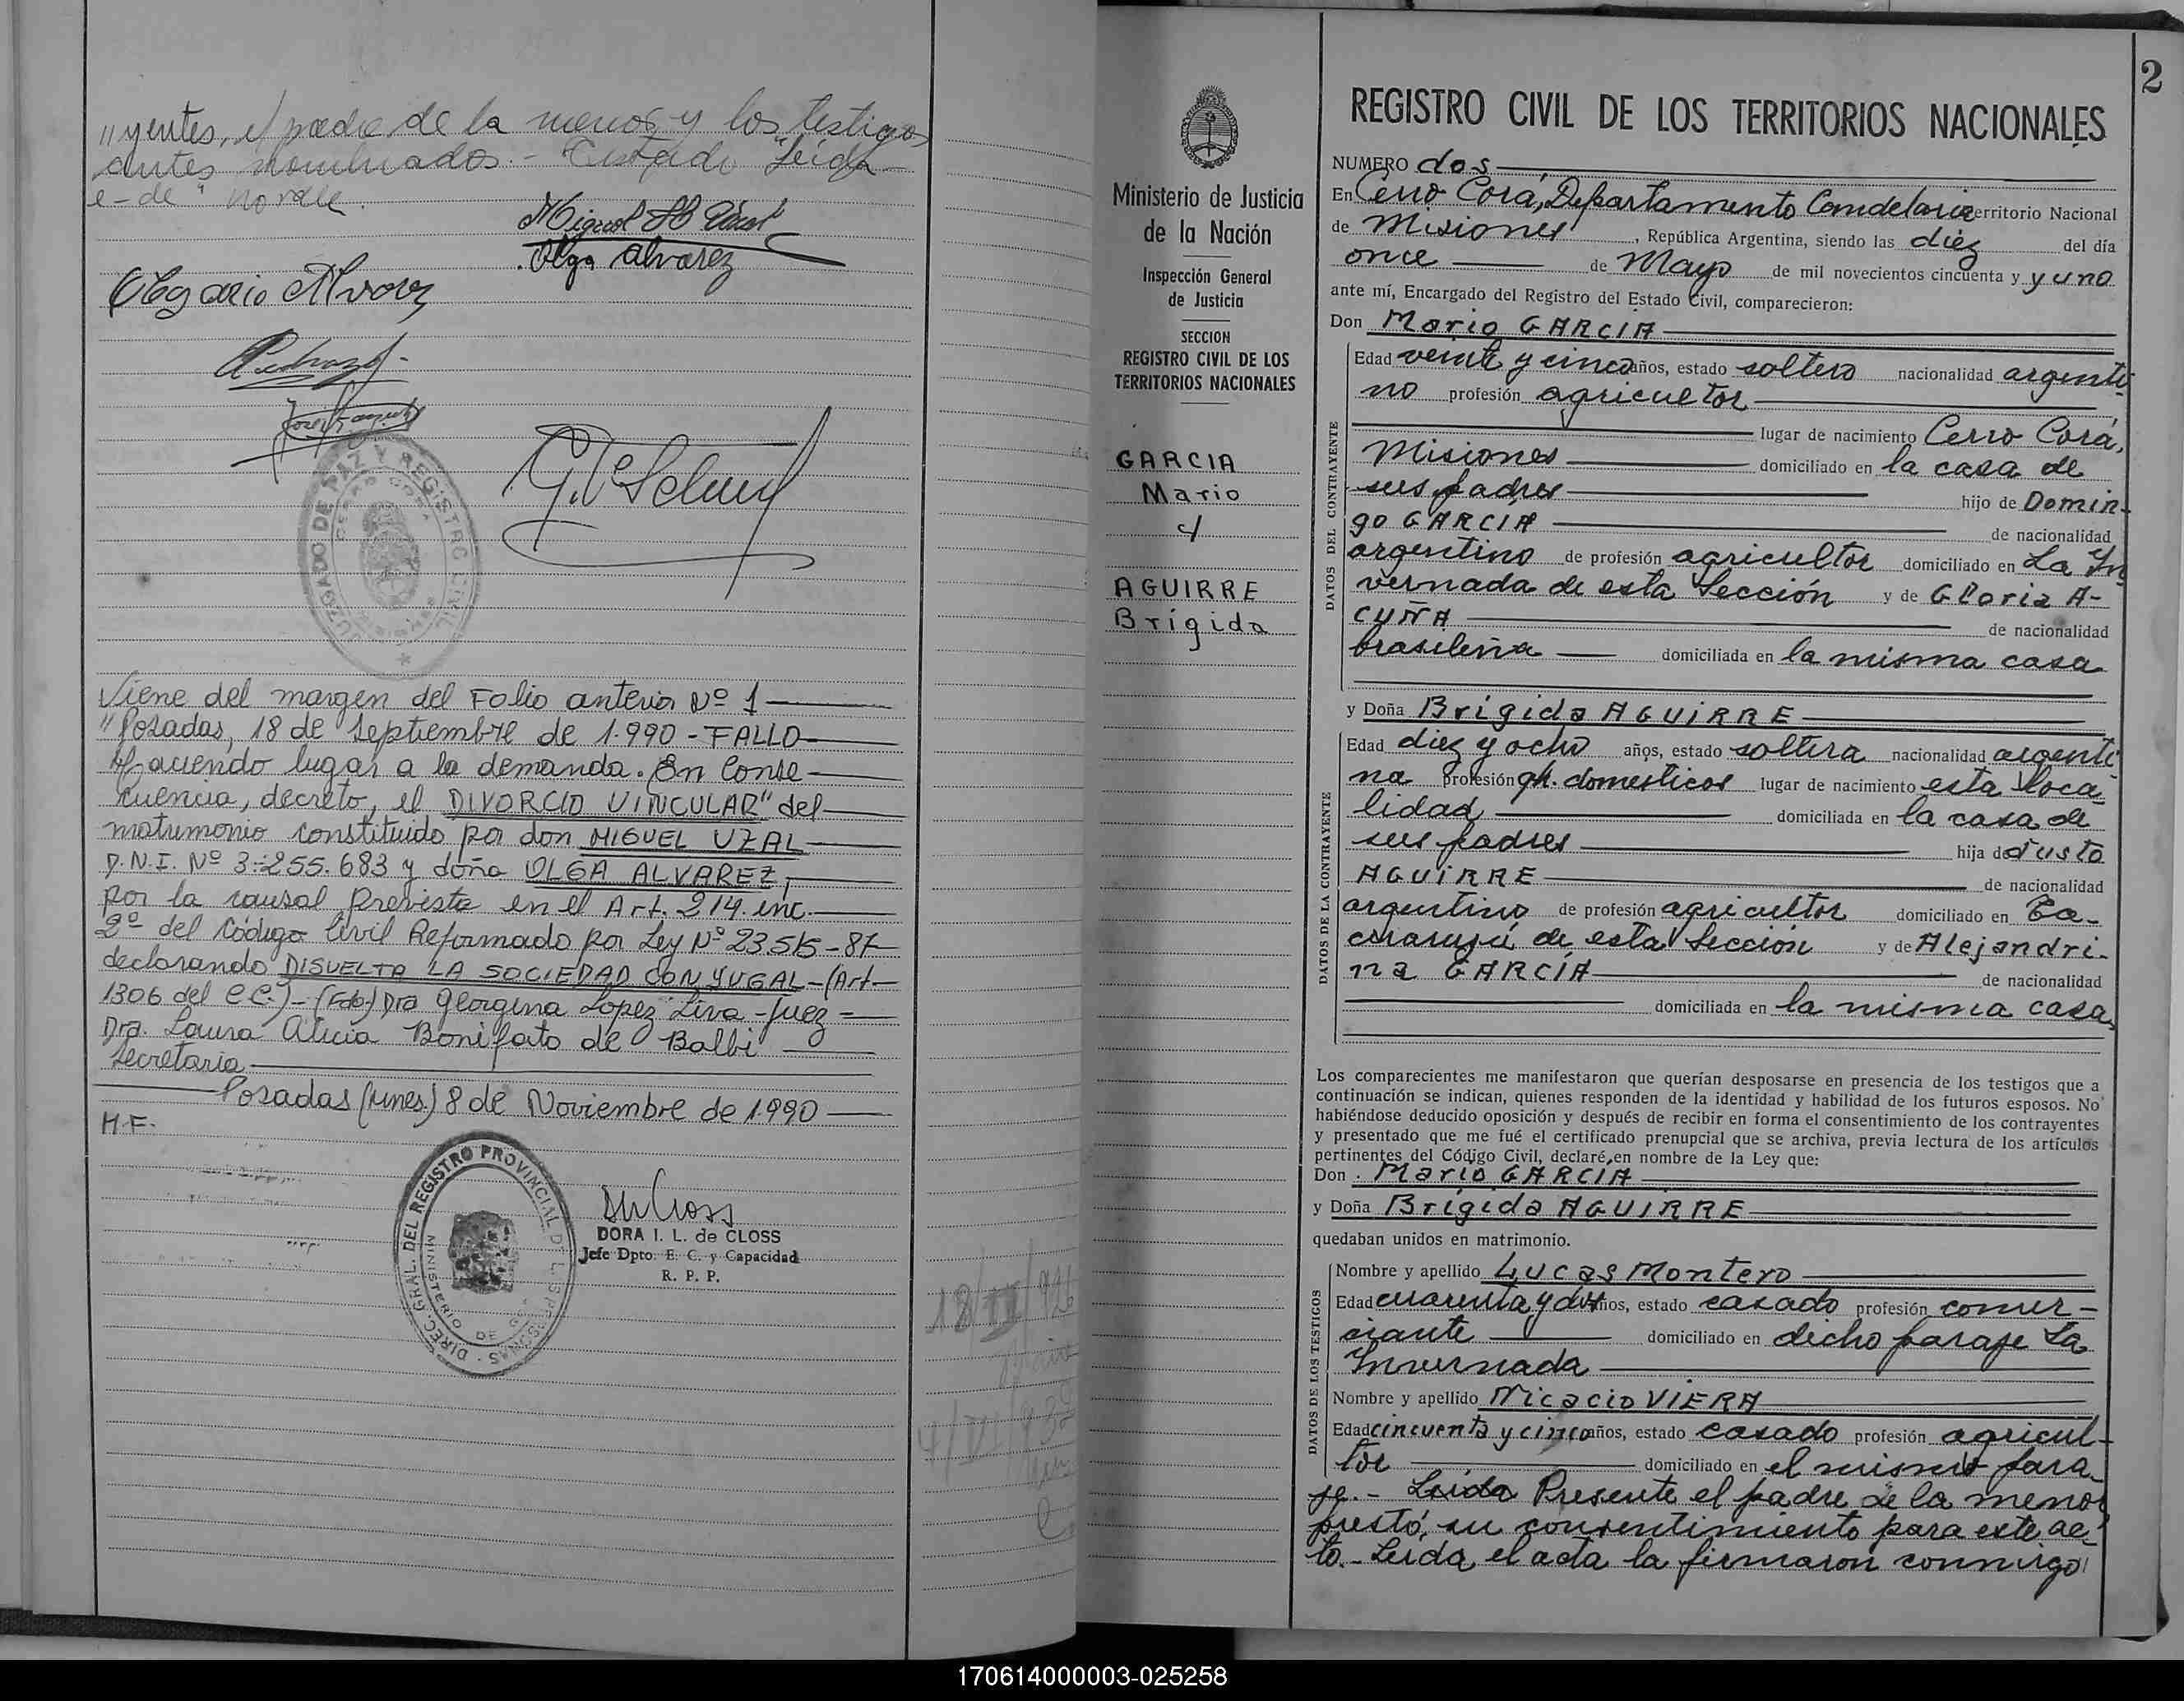 "yentes, el padre de la menor y los testigos
antes nombrados.- Testado "Leida
e-de" no vale.
Olga Alvarez
Olegario Alvarez
JUZGADO DE PAZ Y REGISTRO CIVIL
CERRO CORA
MISIONES
Viene del margen del Folio anterior Nº 1
"Posadas, 18 de Septiembre de 1.990 - FALLO
Haciendo lugar a la demanda. En Conse
cuencia, decreto, el DIVORCIO VINCULAR" del
matrimonio constituido por don MIGUEL UZAL
D.N.I. Nº 3.255.683 y doña OLGA ALVAREZ,
por la causal Prevista en el Art. 214. inc.
2º del Código Civil Reformado por Ley Nº 23.515-87
declarando DISUELTA LA SOCIEDAD CONYUGAL-(Art-
1306 del C.C.)-(Fdo) Dra Georgina Lopez Liva - Juez -
Dra. Laura Alicia Bonifato de Balbi
Secretaria
Posadas (Mnes) 8 de Noviembre de 1.990
H.F.
DIREC. GRAL. DEL REGISTRO PROVINCIAL DE LAS PERSONAS
MINISTERIO DE GOB.
DORA I. L. de CLOSS
Jefe Dpto. E. C. y Capacidad
R. P. P.
2
Ministerio de Justicia
de la Nación
Inspección General
de Justicia
SECCION
REGISTRO CIVIL DE LOS
TERRITORIOS NACIONALES
GARCIA
Mario
c/
AGUIRRE
Brígida
REGISTRO CIVIL DE LOS TERRITORIOS NACIONALES
NUMERO dos
En Cerro Corá, Departamento Candelaria territorio Nacional
de Misiones, República Argentina, siendo las diez del día
once de Mayo de mil novecientos cincuenta y y uno
ante mí, Encargado del Registro del Estado Civil, comparecieron:
Don Mario GARCIA
DATOS DEL CONTRAYENTE
Edad veinte y cinco años, estado soltero nacionalidad argenti
no profesión agricultor
lugar de nacimiento Cerro Corá,
Misiones domiciliado en la casa de
sus padres hijo de Domin-
go GARCIA de nacionalidad
argentino de profesión agricultor domiciliado en La In
vernada de esta Sección y de Gloria A-
CUÑA de nacionalidad
brasileña domiciliada en la misma casa
y Doña Brígida AGUIRRE
DATOS DE LA CONTRAYENTE
Edad diez y ocho años, estado soltera nacionalidad argenti
na profesión qh. domesticos lugar de nacimiento esta loca
lidad domiciliada en la casa de
sus padres hija de Justo
AGUIRRE de nacionalidad
argentino de profesión agricultor domiciliado en
de esta Sección y de Alejandri-
na GARCÍA de nacionalidad
domiciliada en la misma casa
Los comparecientes me manifestaron que querían desposarse en presencia de los testigos que a
continuación se indican, quienes responden de la identidad y habilidad de los futuros esposos. No
habiéndose deducido oposición y después de recibir en forma el consentimiento de los contrayentes
y presentado que me fué el certificado prenupcial que se archiva, previa lectura de los artículos
pertinentes del Código Civil, declaré, en nombre de la Ley que:
Don Mario GARCIA
y Doña Brígida AGUIRRE
quedaban unidos en matrimonio.
DATOS DE LOS TESTIGOS
Nombre y apellido Lucas Montero
Edad cuarenta y dos años, estado casado profesión comer-
ciante domiciliado en dicho paraje La
Invernada
Nombre y apellido Nicacio VIERA
Edad cincuenta y cinco años, estado casado profesión agricul-
tor domiciliado en el mismo para
je.- Leida Presente el padre de la menor
prestó, su consentimiento para este ac
to.- Leida, el acta la firmaron conmigo
170614000003-025258